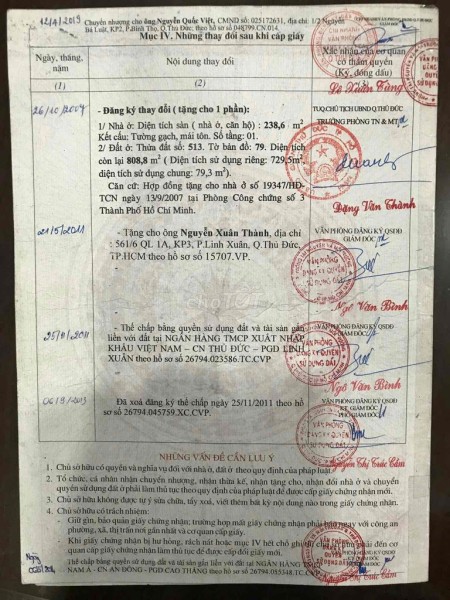 12/4/2019 Chuyển nhượng cho ông Nguyễn Quốc Việt, CMND số: 025172631, địa chỉ: 1/2 Nguyễn
Bá Luật, KP2, P.Bình Thọ, Q.Thủ Đức, theo hồ sơ 048799.CN.014.
Mục IV. Những thay đổi sau khi cấp giấy
Ngày, tháng, năm
Nội dung thay đổi
Xác nhận của cơ quan
có thẩm quyền
(Ký, đóng dấu)
(1)
(2)
Lê Xuân Tùng
26/10/2007
- Đăng ký thay đổi (tặng cho 1 phần):
1/ Nhà ở: Diện tích sàn (nhà ở, căn hộ) : 238,6 m²
Kết cấu: Tường gạch, mái tôn. Số tầng: 01.
2/ Đất ở: Thửa đất số: 513. Tờ bản đồ: 79. Diện tích
còn lại 808,8 m² ( Diện tích sử dụng riêng: 729,5m²,
diện tích sử dụng chung: 79,3 m²).
Căn cứ: Hợp đồng tặng cho nhà ở số 19347/HĐ-
TCN ngày 13/9/2007 tại Phòng Công chứng số 3
Thành Phố Hồ Chí Minh.
TUQ.CHỦ TỊCH UBND Q.THỦ ĐỨC
TRƯỞNG PHÒNG TN & MT
Đặng Văn Thành
21/5/2011
- Tặng cho ông Nguyễn Xuân Thành, địa chỉ
: 561/6 QL 1A, KP3, P.Linh Xuân, Q.Thủ Đức,
TP.HCM theo hồ sơ số 15707.VP.
VĂN PHÒNG ĐĂNG KÝ QSDĐ
GIÁM ĐỐC
VĂN PHÒNG
ĐĂNG KÝ QUYỀN
SỬ DỤNG ĐẤT
Ngô Văn Bình
chợTỐT
- Thế chấp bằng quyền sử dụng đất và tài sản gắn
liền với đất tại NGÂN HÀNG TMCP XUẤT NHẬP
KHẨU VIỆT NAM – CN THỦ ĐỨC – PGD LINH
XUÂN theo hồ sơ số 26794.023586.TC.CVP
VĂN PHÒNG ĐĂNG KÝ QSDĐ
GIÁM ĐỐC
VĂN PHÒNG
ĐĂNG KÝ QUYỀN
SỬ DỤNG ĐẤT
Ngô Văn Bình
Đã xoá đăng ký thế chấp ngày 25/11/2011 theo hồ
sơ số 26794.045759.XC.CVP.
VĂN PHÒNG ĐĂNG KÝ QSDĐ
KT.GIÁM ĐỐC
PHÓ GIÁM ĐỐC
Nguyễn Thị Trúc Cầm
NHỮNG VẤN ĐỀ CẦN LƯU Ý
1. Chủ sở hữu có quyền và nghĩa vụ đối với nhà ở, đất ở theo quy định của pháp luật.
2. Tổ chức, cá nhân nhận chuyển nhượng, nhận thừa kế, nhận tặng cho, nhận đổi nhà ở và chuyển
quyền sử dụng đất ở phải làm thủ tục theo quy định của pháp luật để được cấp giấy chứng nhận mới.
3. Chủ sở hữu không được tự ý sửa chữa, tẩy xoá, viết thêm bất kỳ nội dung nào trong giấy chứng nhận.
4. Chủ sở hữu có trách nhiệm:
- Giữ gìn, bảo quản giấy chứng nhận; trường hợp mất giấy chứng nhận phải báo ngay với công an
phường, xã, thị trấn nơi giấy chứng nhận và cơ quan cấp giấy.
- Khi giấy chứng nhận bị hư hỏng, rách nát hoặc mục IV hết chỗ ghi phải đến cơ
quan cấp giấy chứng nhận làm thủ tục để được cấp đổi giấy mới.
Ngày
Thế chấp bằng quyền sử dụng đất và tài sản gắn liền với đất tại NGÂN HÀNG TMCP
NAM Á - CN AN ĐÔNG - PGD CAO THẮNG theo hồ sơ số 26794.055348.TC.CVP
Nguyễn Thị Trúc Cầm